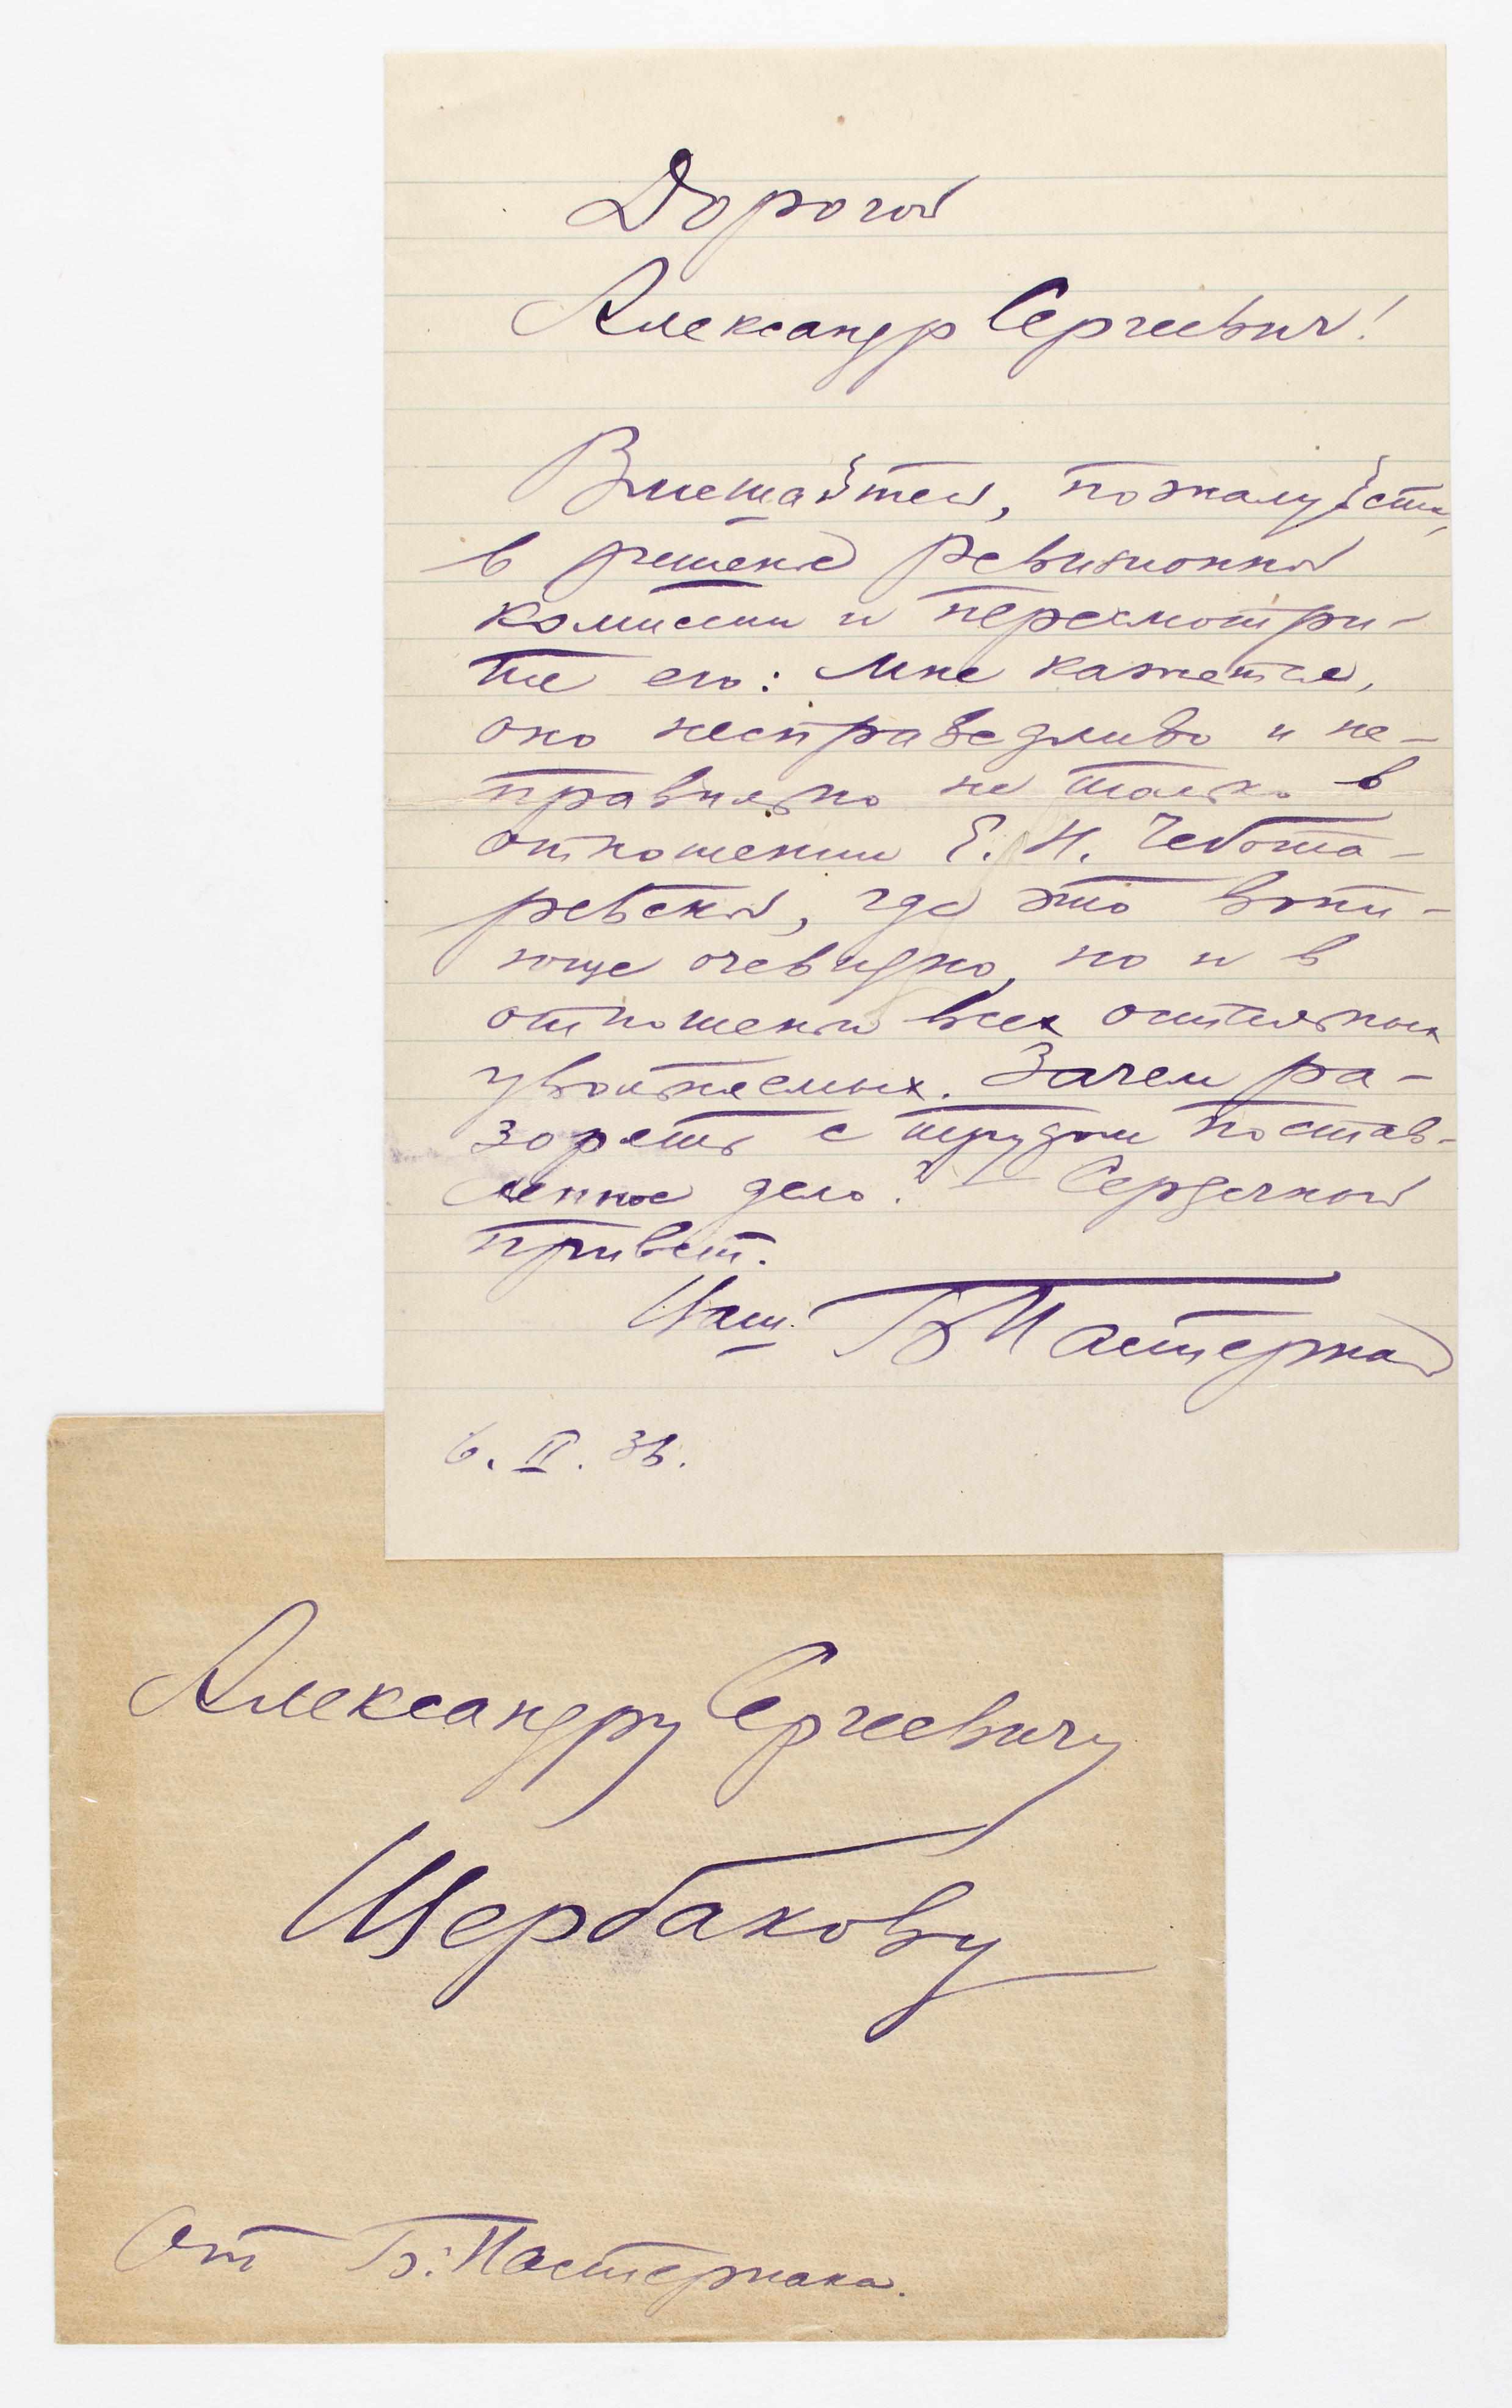 Дорогой
Александр Сергеевич!
Вмешайтесь, пожалуйста,
в решенье ревизионной
комиссии и пересмотри-
те его: мне кажется,
оно несправедливо и не-
правильно не только в
отношении Е. И. Чебота-
ревской, где это вопи-
юще очевидно, но и в
отношеньи всех остальных
увольняемых. Зачем ра-
зорять с трудом постав-
ленное дело? — Сердечный
привет.
Ваш Б Пастернак
6. II. 36.
Александру Сергеевичу
Щербакову
От Б. Пастернака.